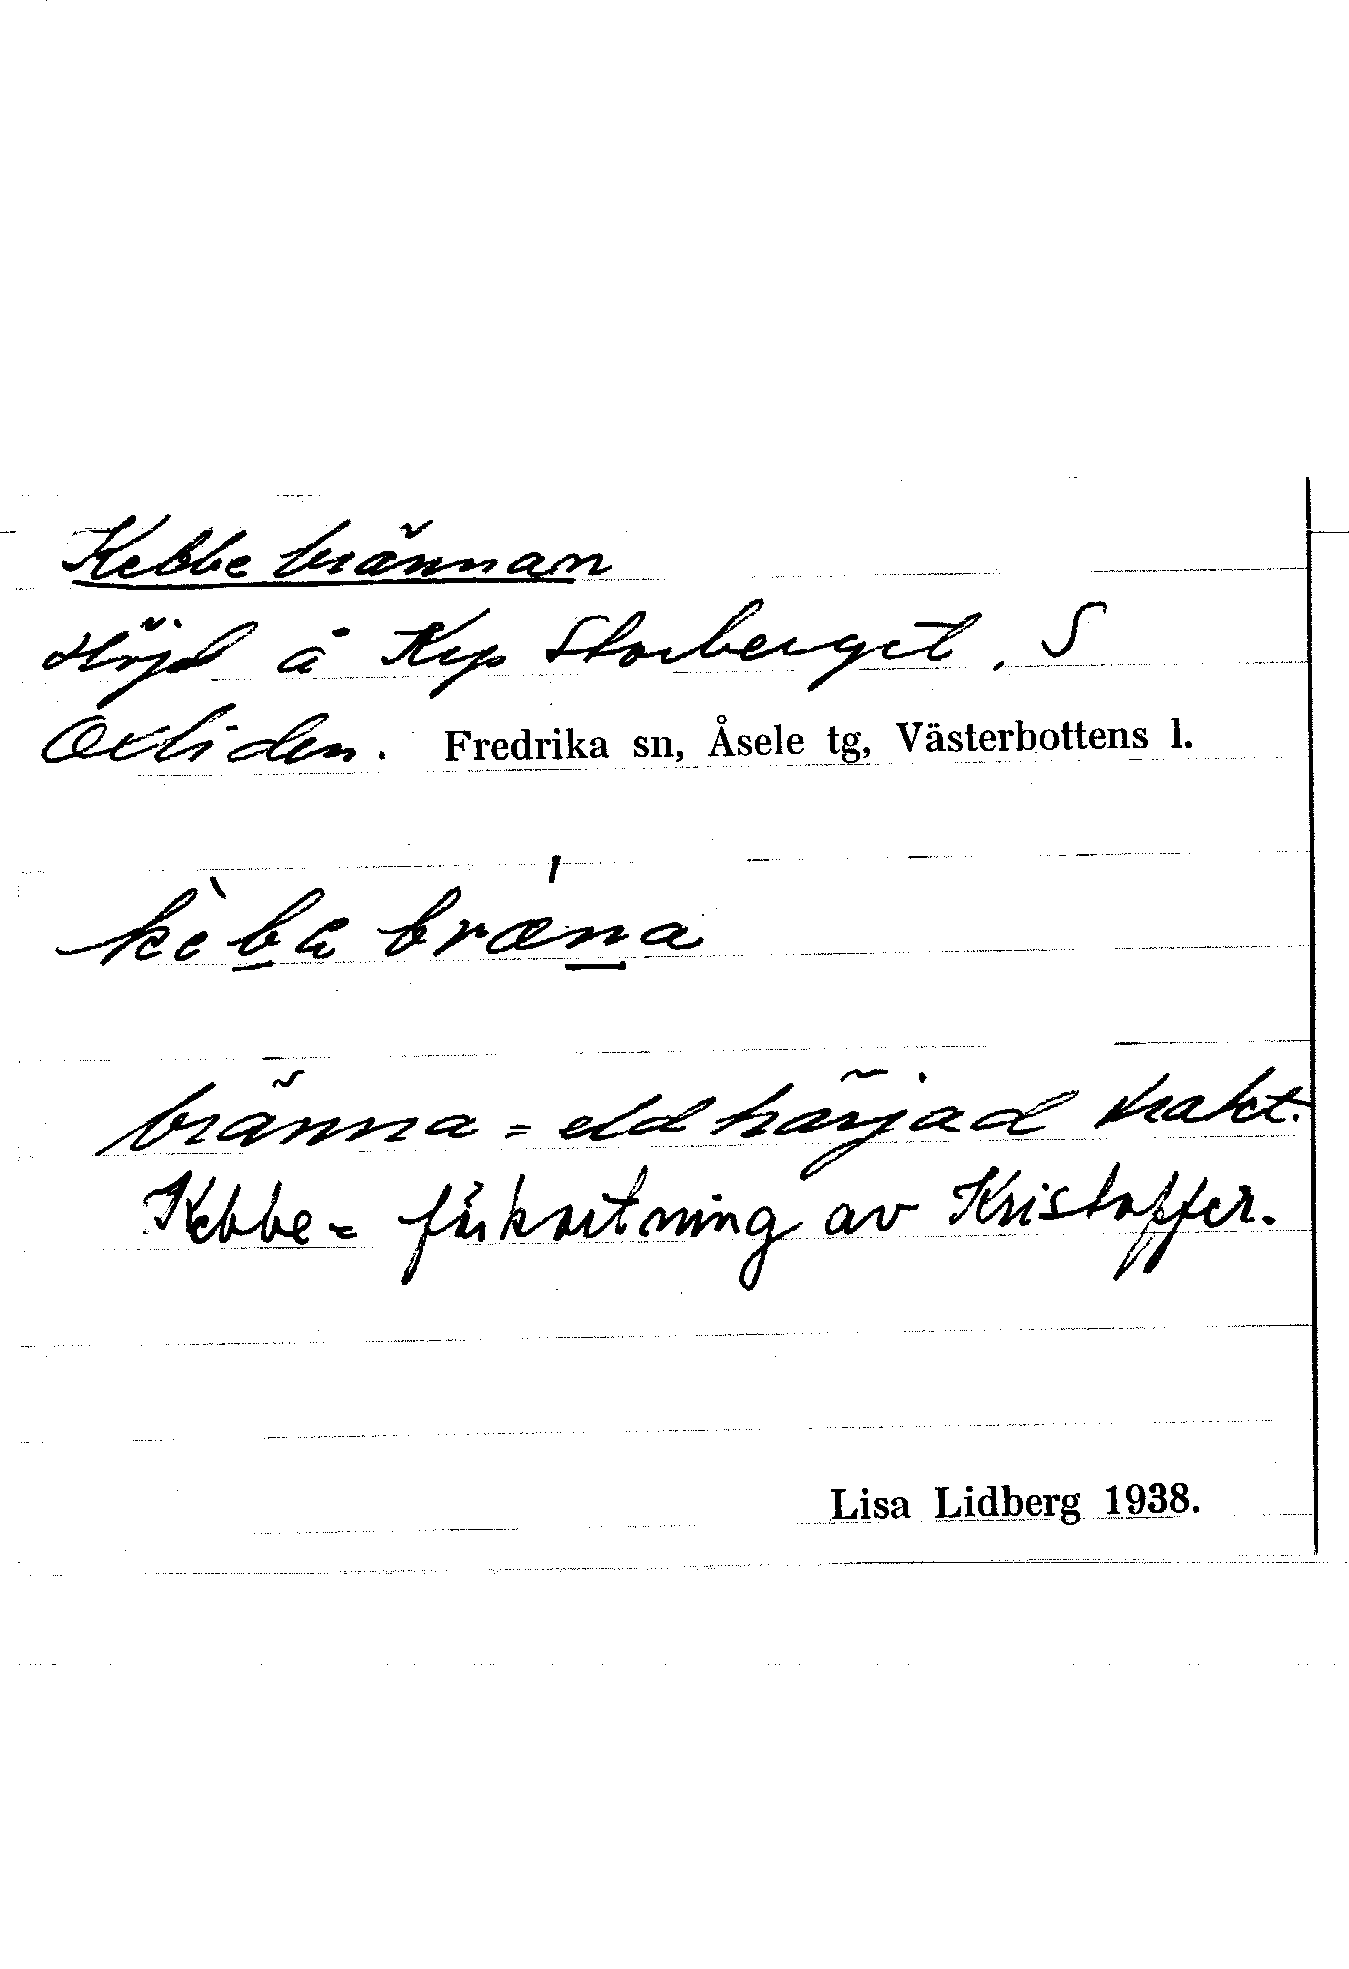 Kebbebrännan
Höjd å Krp Storberget, S
Oxliden. Fredrika sn, Åsele tg, Västerbottens l.
kèba bræ'na
bränna = eldhärjad trakt.
Kebbe = förkortning av Kristoffer.
Lisa Lidberg 1938.